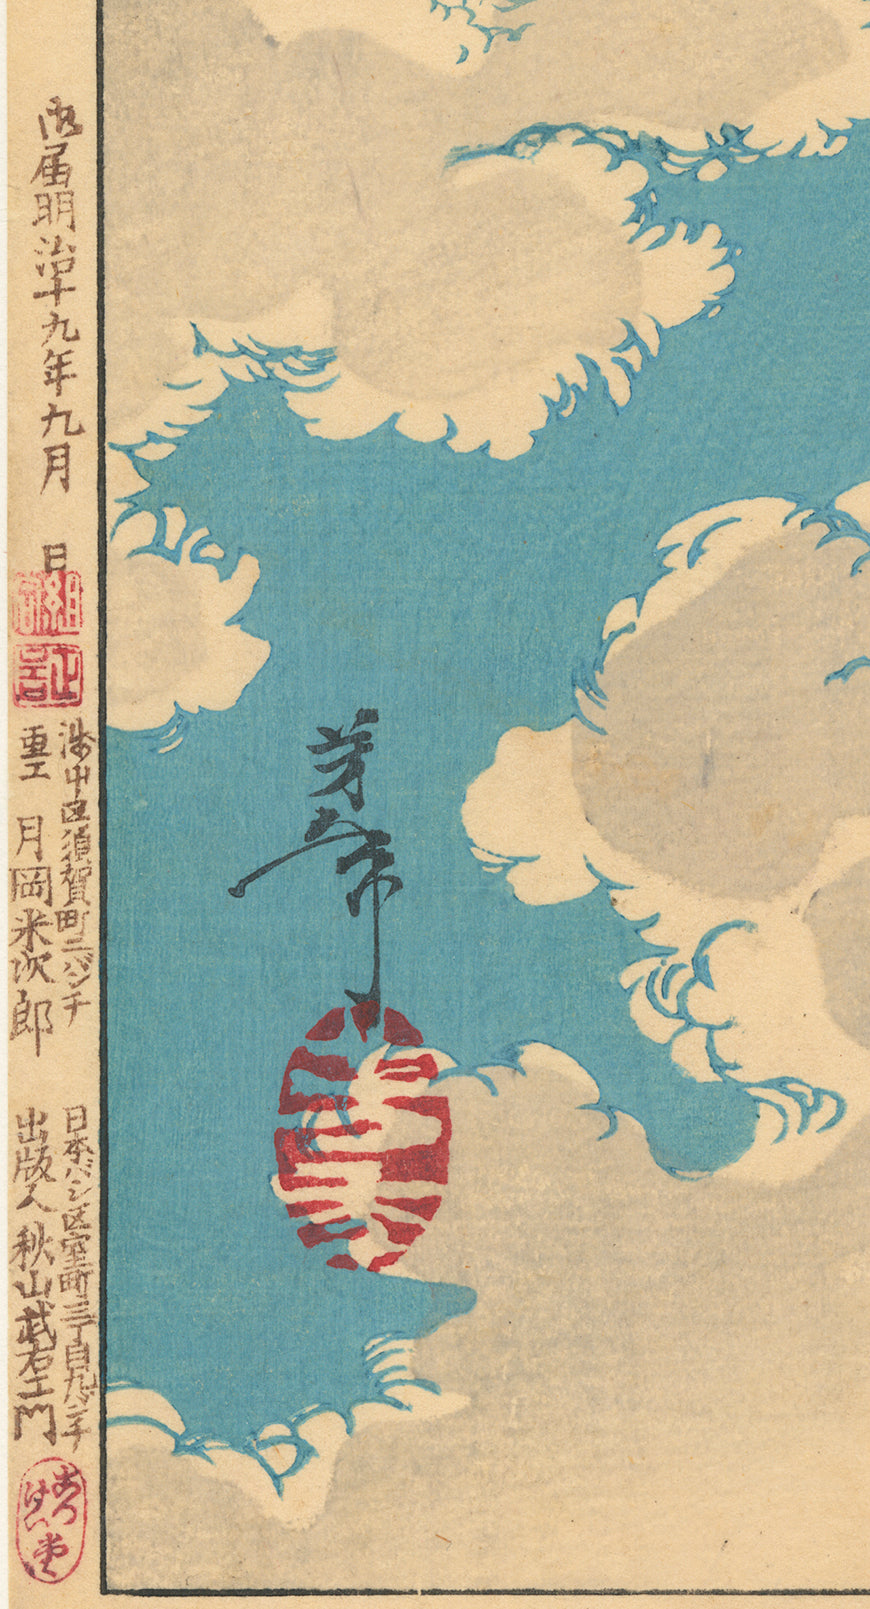 御届明治十九年九月　日
組
証
浅中区須賀町二バンチ
画工　月岡米次郎
日本バシ区室町三丁目九バンチ
出版人　秋山武右エ門
芳年